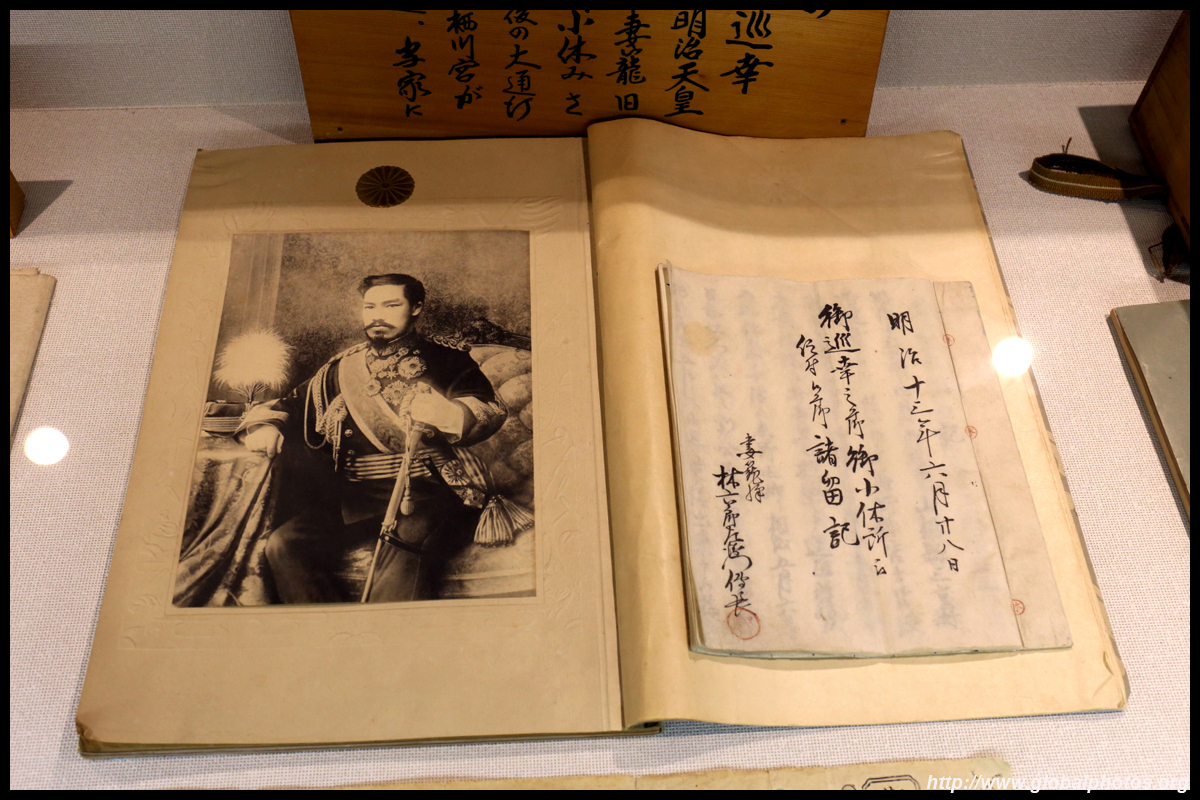 巡幸
明治天皇
妻籠旧
小休みさ
後の大通行
栖川宮が
、当家に
明治十三年六月廿八日
御巡幸之節御小休所ニ
諸留記
妻籠驛
林六郎左衛門
http://www.globalphotos.org